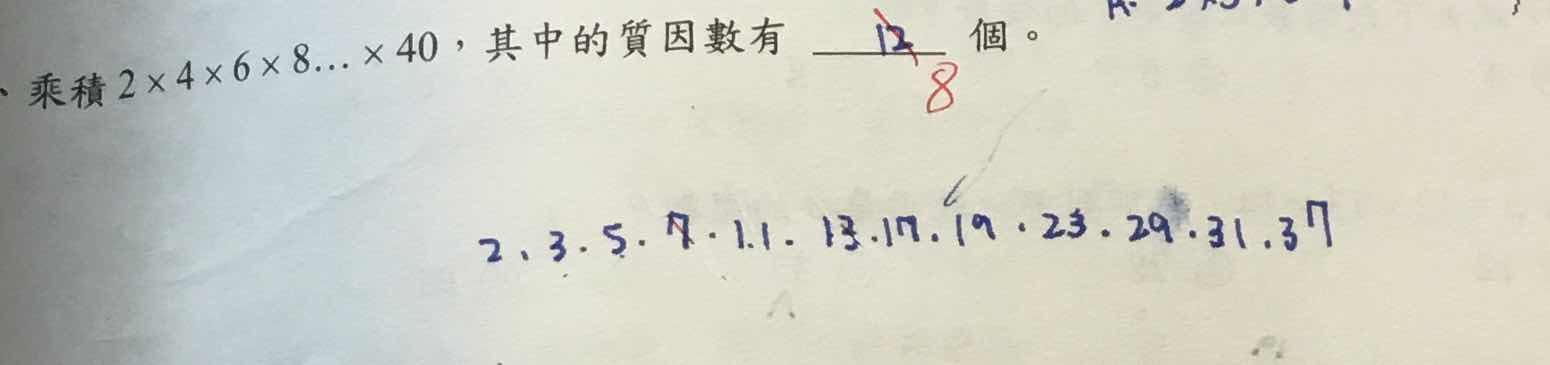 、乘積 2 × 4 × 6 × 8... × 40，其中的質因數有 12 個。
8
2、3．5．7．11．13．17．19．23．29．31．37